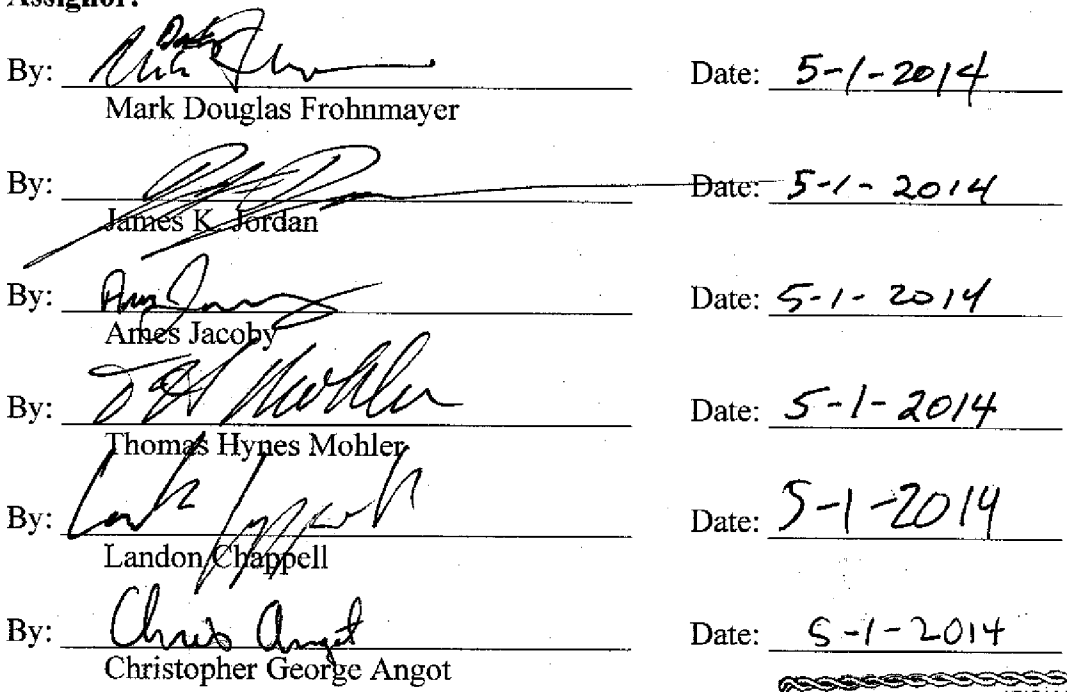 Assignor:
By: Date: 5-1-2014
Mark Douglas Frohnmayer
By: Date: 5-1-2014
James K. Jordan
By: Date: 5-1-2014
Ames Jacoby
By: Date: 5-1-2014
Thomas Hynes Mohler
By: Date: 5-1-2014
Landon Chappell
By: Chris Angot Date: 5-1-2014
Christopher George Angot